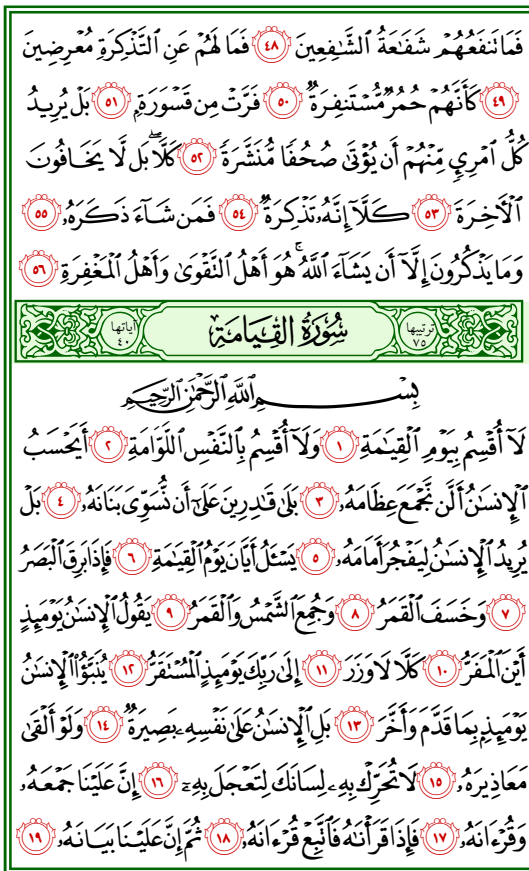 فَمَا تَنفَعُهُمْ شَفَـٰعَةُ ٱلشَّـٰفِعِينَ ٤٨ فَمَا لَهُمْ عَنِ ٱلتَّذْكِرَةِ مُعْرِضِينَ
٤٩ كَأَنَّهُمْ حُمُرٌ مُّسْتَنفِرَةٌ ٥٠ فَرَّتْ مِن قَسْوَرَةٍۭ ٥١ بَلْ يُرِيدُ
كُلُّ ٱمْرِئٍ مِّنْهُمْ أَن يُؤْتَىٰ صُحُفًا مُّنَشَّرَةً ٥٢ كَلَّاۖ بَل لَّا يَخَافُونَ
ٱلْـَٔاخِرَةَ ٥٣ كَلَّآ إِنَّهُۥ تَذْكِرَةٌ ٥٤ فَمَن شَآءَ ذَكَرَهُۥ ٥٥
وَمَا يَذْكُرُونَ إِلَّآ أَن يَشَآءَ ٱللَّهُۚ هُوَ أَهْلُ ٱلتَّقْوَىٰ وَأَهْلُ ٱلْمَغْفِرَةِ ٥٦
ترتيبها ٧٥ سُورَةُ القِيَامَةِ آياتها ٤٠
بِسْمِ ٱللَّهِ ٱلرَّحْمَـٰنِ ٱلرَّحِيمِ
لَآ أُقْسِمُ بِيَوْمِ ٱلْقِيَـٰمَةِ ١ وَلَآ أُقْسِمُ بِٱلنَّفْسِ ٱللَّوَّامَةِ ٢ أَيَحْسَبُ
ٱلْإِنسَـٰنُ أَلَّن نَّجْمَعَ عِظَامَهُۥ ٣ بَلَىٰ قَـٰدِرِينَ عَلَىٰٓ أَن نُّسَوِّىَ بَنَانَهُۥ ٤ بَلْ
يُرِيدُ ٱلْإِنسَـٰنُ لِيَفْجُرَ أَمَامَهُۥ ٥ يَسْـَٔلُ أَيَّانَ يَوْمُ ٱلْقِيَـٰمَةِ ٦ فَإِذَا بَرِقَ ٱلْبَصَرُ
٧ وَخَسَفَ ٱلْقَمَرُ ٨ وَجُمِعَ ٱلشَّمْسُ وَٱلْقَمَرُ ٩ يَقُولُ ٱلْإِنسَـٰنُ يَوْمَئِذٍ
أَيْنَ ٱلْمَفَرُّ ١٠ كَلَّا لَا وَزَرَ ١١ إِلَىٰ رَبِّكَ يَوْمَئِذٍ ٱلْمُسْتَقَرُّ ١٢ يُنَبَّؤُا۟ ٱلْإِنسَـٰنُ
يَوْمَئِذٍۭ بِمَا قَدَّمَ وَأَخَّرَ ١٣ بَلِ ٱلْإِنسَـٰنُ عَلَىٰ نَفْسِهِۦ بَصِيرَةٌ ١٤ وَلَوْ أَلْقَىٰ
مَعَاذِيرَهُۥ ١٥ لَا تُحَرِّكْ بِهِۦ لِسَانَكَ لِتَعْجَلَ بِهِۦٓ ١٦ إِنَّ عَلَيْنَا جَمْعَهُۥ
وَقُرْءَانَهُۥ ١٧ فَإِذَا قَرَأْنَـٰهُ فَٱتَّبِعْ قُرْءَانَهُۥ ١٨ ثُمَّ إِنَّ عَلَيْنَا بَيَانَهُۥ ١٩